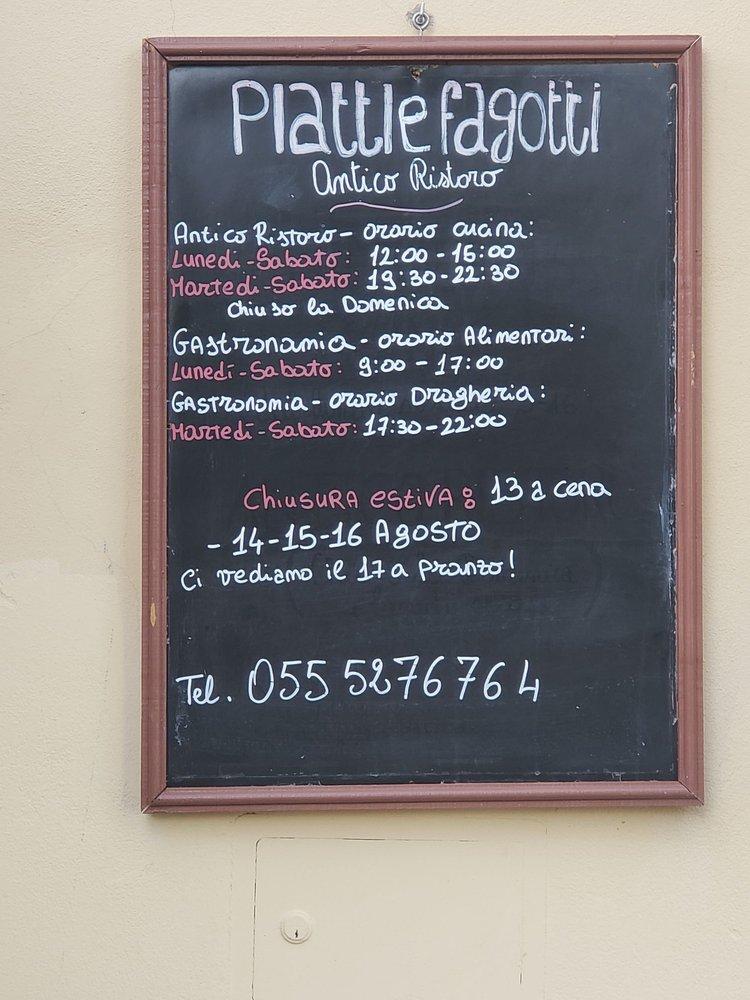 Piattie fagotti
Antico Ristoro
Antico Ristoro - orario cucina:
Lunedi - Sabato: 12:00 - 15:00
Martedi - Sabato: 19:30 - 22:30
Chiuso la Domenica
GAstronamia - orario Alimentari:
Lunedi - Sabato: 9:00 - 17:00
GAStronomia - orario Dragheria:
Martedi - Sabato: 17:30 - 22:00
CHiUSURA eStiVA: 13 a cena
- 14-15-16 AgOSTO
Ci vediamo il 17 a pranzo!
Tel. 055 5276764